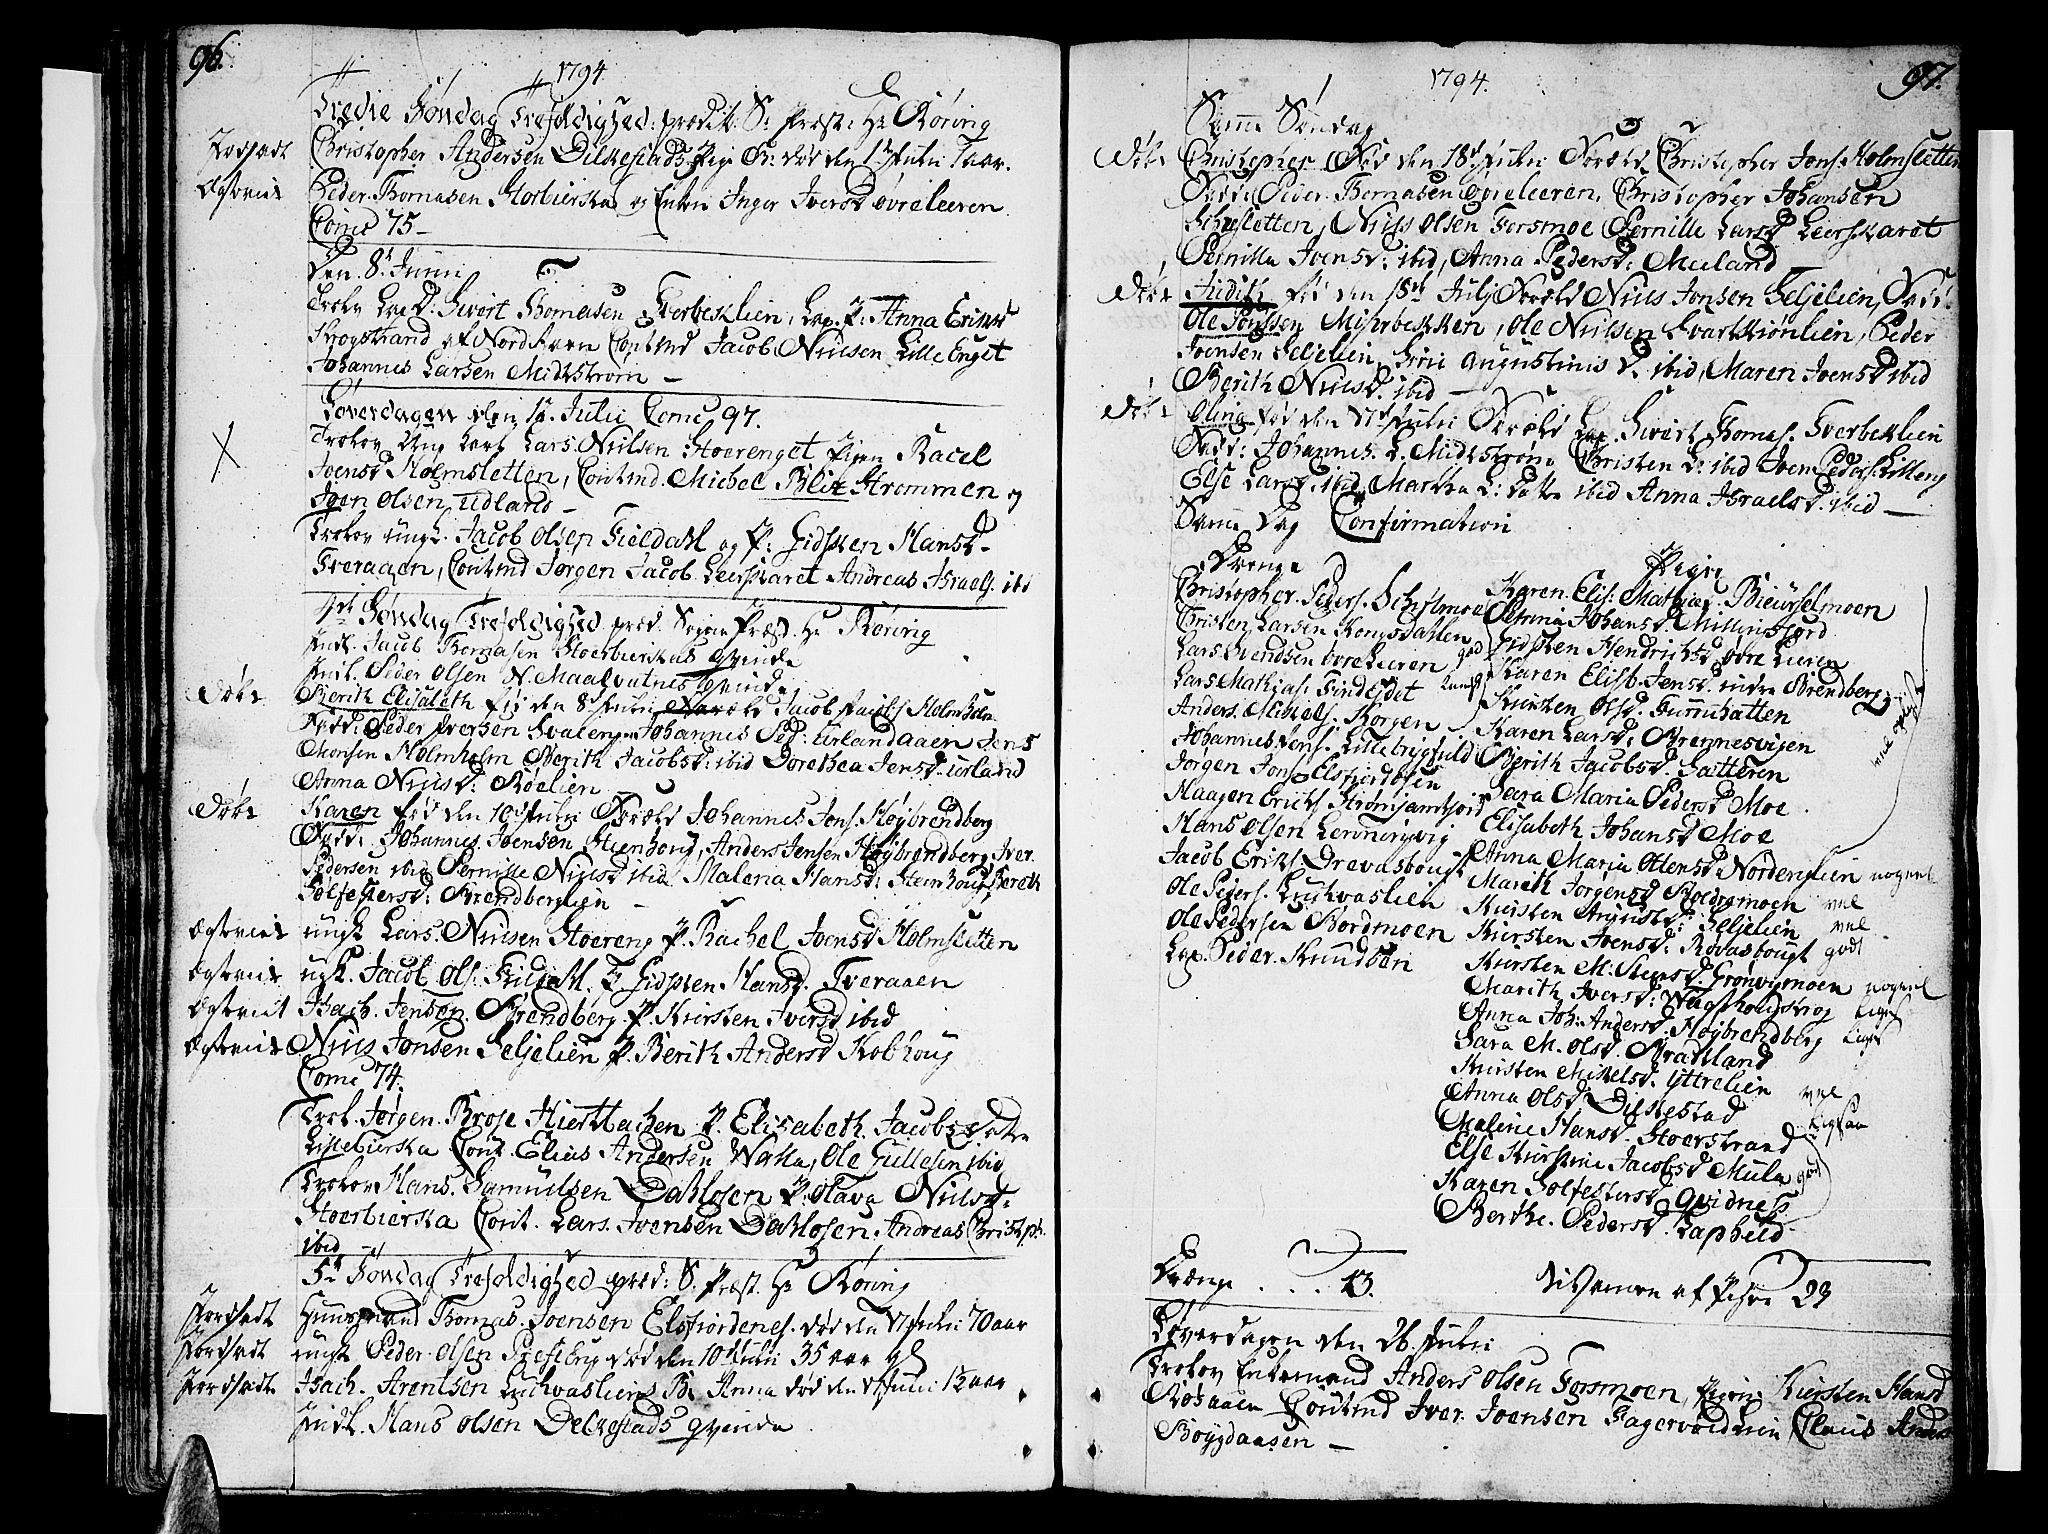 96.
1794
Tredie Søndag Trefoldighed: prædik. S: Præst: Hr Røring
Jordfædt Christopher Andersen Dilkestads Pige B: død den 1te Juli 1 aar.
Ægteviet Peder Thomasen Storbierska og Enken Inger Iversd øvreleeren
Come 75 –
Den 8de Juni
Trolov Lap D: Sivert Thomesen Tverbeklien, Lap. P: Anna Ericsd
Skogstrand af Nord Ranen Contmd Jacob Nielsen Lille Enget
Johannes Larsen Midtstrøm –
Løverdagen den 12 Julii Come 97.
Trolov Ung Karl Lars Nielsen Stoerenget Pigen Racel
Joensd Holmsletten, Contmd. Michel Blix Strommen og
Joen Olsen Udland –
Trolov ungk. Jacob Olsen Fieldahl og P: Gidsken Hansd
Tveraaen, Contmd Jørgen Jacob. Leerskaret Andreas Israels. ibid
4de Søndag Trefoldighed præd. Sogne Præst. Hr Røring
Indl. Jacob Thomasen Stoerbierskas qvinde
Indl. Peder Olsen N. Maalvatnes qvinde
Døbt Berith Elisabeth fød den 8de Juli Jacob Jacobs. Holmholm
Fadd: Peder Iversen Svaleng Johannes Ped: Urlandaaen Jens
Monsen Holmholm Berith Jacobsd: ibid Dorethea Jensd: Urland
Anna Nielsd: Røelien
Døbt Karen fød den 10de Juli Foræld Johannes Jens. Høybrendberg
Fadd: Johannes Joensen Steenhoug, Anders Jensen Høybrendberg Iver
Pedersen ibid Pernille Nielsd ibid Malena Hansd: Steenhoug, Bereth
Tolfestersd: Brendberglien –
Ægteviet ungk Lars. Nielsen Stoereng P. Rachel Joensd Holmsletten
Ægteviet ugk. Jacob Ols. Fieldahl. P Gidsken Hansd. Tveraaen
Ægteviet Isach. Jensen. Brendberg. P. Kiersten Iversd ibid
Ægteviet Niels Jonsen Seljelien P. Berith Andersd Kolhoug
Come 74.
Trol. Jørgen. Brose Hiertthachen P. Elisabeth. Jacobs Datter
Lillebierska Cont. Elias Andersen Walla, Ole Gullesen ibid
Trolov Hans. Samuelsen Dahlosen P. Olava Nielsd:
Stoerbierska Cont. Lars. Ivensen Dahlosen. Andreas Christop:
ibid
5te Søndag Trefoldighed præd: S. Præst. Hr Røring
Jordfædt Huusmand Thomas. Joensen Elsfiordenes. død den 17 Juli 70 aar
Jordfædt ungk Peder Olsen død den 10de Juli 35 aar gl
Jordfædt Isach. Arentsen Luchvasliens B. Anna død den Juli 12 aar
Indl. Hans Olsen Delkestads qvinde
97.
1794.
Samme Søndag
Døbt Christopher fød den 18de Juli Foræld Christopher Jons. Holmsletten
Fadd: Peder Thomasen øvreleeren, Christopher Johansen
Holmsletten, Niels Olsen Forsmoe Pernille Larsd Leerskaret
Pernilla Joensd: ibid, Anna Pedersd: Mieland
Døbt Judith fød den 15de Julj Foræld Niels Jonsen Seljelien, Fadd:
Ole Jonssen Miserbekken, Ole Nielsen Svarttiønlien, Peder
Joensen Seljelien, Siri Augustinis D. ibid, Maren Joensd ibid
Berith Nielsd. ibid –
Døbt Olina fød den 17de Juli Foræld Lap. Sivert Thomas. Tverbeklien
Fadd: Johannes. L. Midtstrøm, Christen L: ibid Joen Peders Lilleng
Else Larsd: ibid, Martha L: Datter ibid Anna Israelsd: ibid –
Samme Dag Confirmation
Drenge
Christopher. Peders. Schielmoe
Christen Larsen Kongsdallen
Lars Svendsen øvre Leeren god
Lars Mathias. Findejdet
Anders. Mikkels. Korgen
Johannes Jens. Lillebrygfield
Jorgen Jons Elsfjordbøen
Haagen Ericks Strømjamtfjord
Hans Olsen Lenningsvig
Jacob Ericks. Drevasbougt
Ole Peders. Luchvaslien
Ole Pedersen Bordmoen
Lap. Peder. Knudsen
Piger
Karen. Elis: Mathias. Bieürselmoen
Pernnia Johansd Millingsjord
Gidsken Hendrichsd øvre Lieren
Karen Elisb. Jensd. indre Brendberg
Kiersten Olsd. Grunnbatten
Karen Larsd: Brennesvigen
Berith Jacobsd. Sætteren
Sara Maria Pedersd Moe
Elisabeth Johansd Moe
Anna Maria Olsensd Nordenglien nogenl.
Marith Jorgensd Moldremoen vel
Kiersten Arnstd: Seljelien vel
Kiersten Joensd: Røvasbougt godt
Kiersten M. Stensd. Grønvigmoen nogenl
Marith Iversd: Waagsholgskrog
Anna Joh. Andersd. Høybrendberg
Sara M. Olsd. Brattland
Kiersten Mikkelsd. Ytterlien
Anna Olsd Dilkestad vel
Malene Hansd. Stoerstrand ligesaa
Else Kierstine Jacobsd Mula godt
Karen Tolfestersd: Qvidnes
Berthe. Pedersd. Laphield
Drænge . . . . 13. Til Samen af Piger 23
Løverdagen den 26. Julii
Trolov Enkemand Anders Olsen Forsmoen, Pigen Kiersten Hansd
Røsaaen Contmd Iver. Joensen Fagervoldlien Claus Anders
Bøygdaasen –